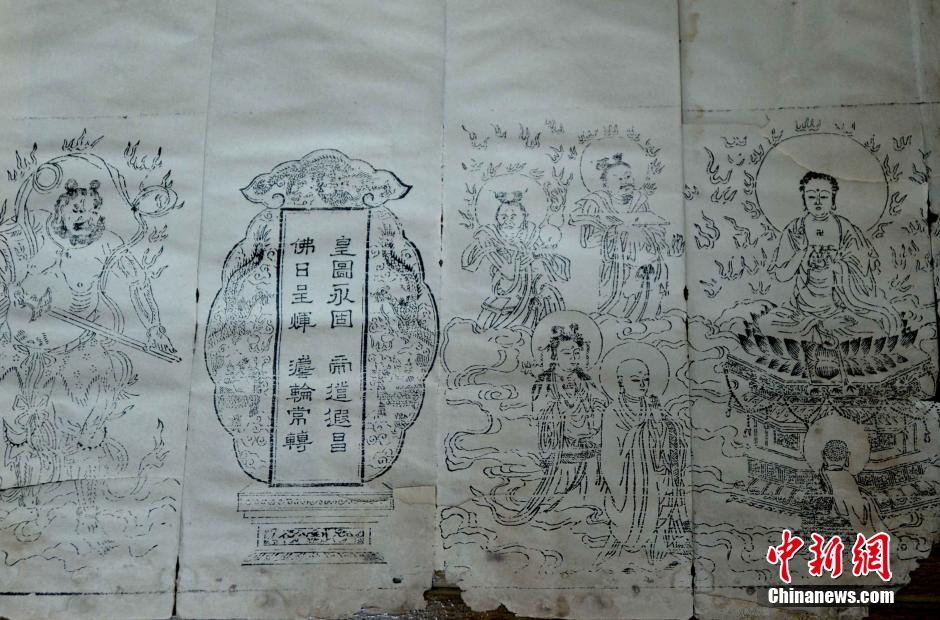 皇圖永固 帝道遐昌
佛日呈煇 灋輪常轉
中新網
Chinanews.com